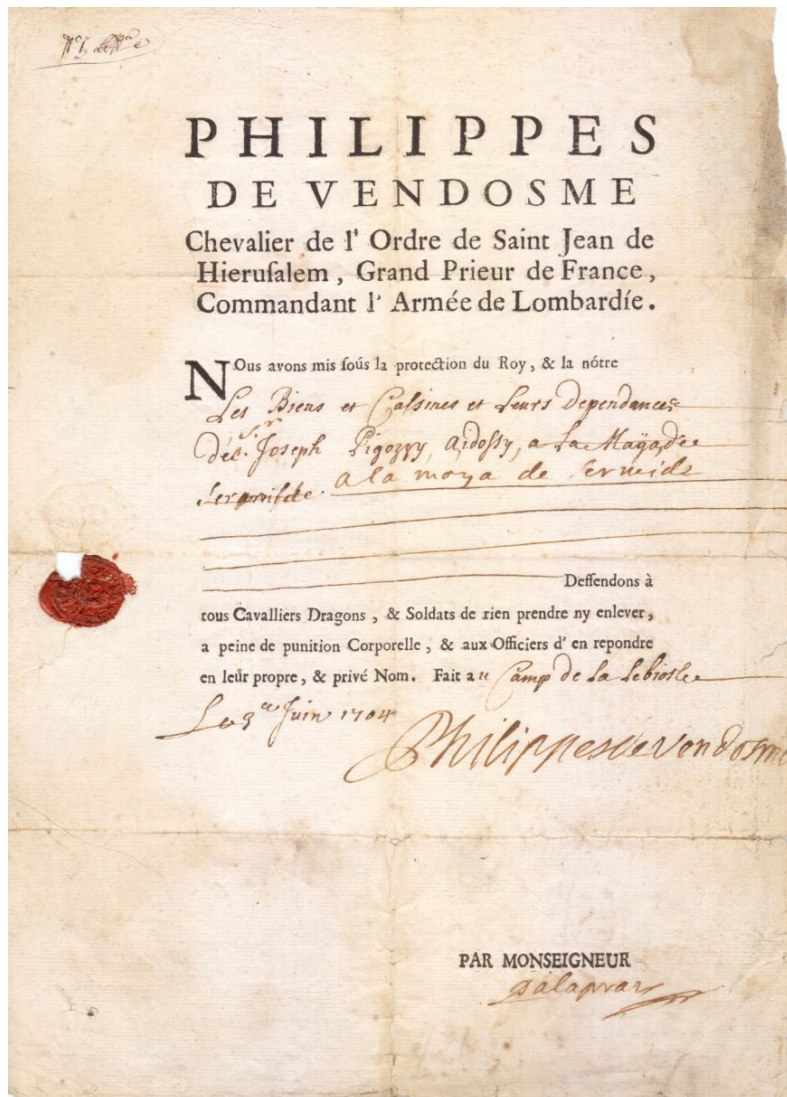 PHILIPPES
DE VENDOSME
Chevalier de l' Ordre de Saint Jean de
Hieruſalem, Grand Prieur de France,
Commandant l' Armée de Lombardíe.
NOus avons mis ſoús la protection du Roy, & la nótre
Les Biens et Cassines et Leurs Dependances
Joseph Pigozzy, a la
a la moya de Sermide
Deffendons à
tous Cavalliers Dragons, & Soldats de rien prendre ny enlever,
a peine de punition Corporelle, & aux Officiers d' en repondre
en leur propre, & privé Nom. Fait au Camp de La
Le 3e Juin 1704
Philippes de Vendosme
PAR MONSEIGNEUR
Palaprat